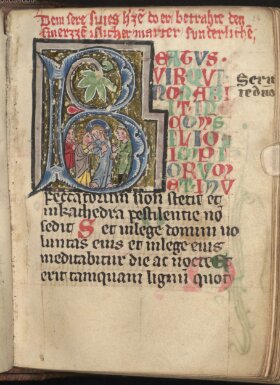 Dem sere do er betrahte den
marter sunderliche
B EATVS·
VIR QVI
NON ABI
ILIO
IMPI
ORVM
ET IN V
Seru
ite dno
peccatorum non stetit et
in kachedra pestilentie nō
sedit S et in lege domini vo
luntas eius et in lege eius
meditabitur die ac nocte Et
erit tamquam lignum quot